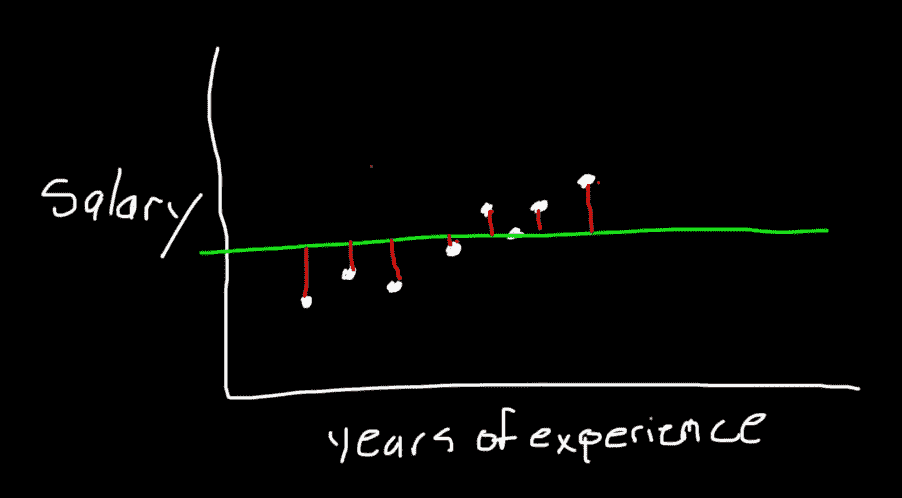 Salary
years of experience